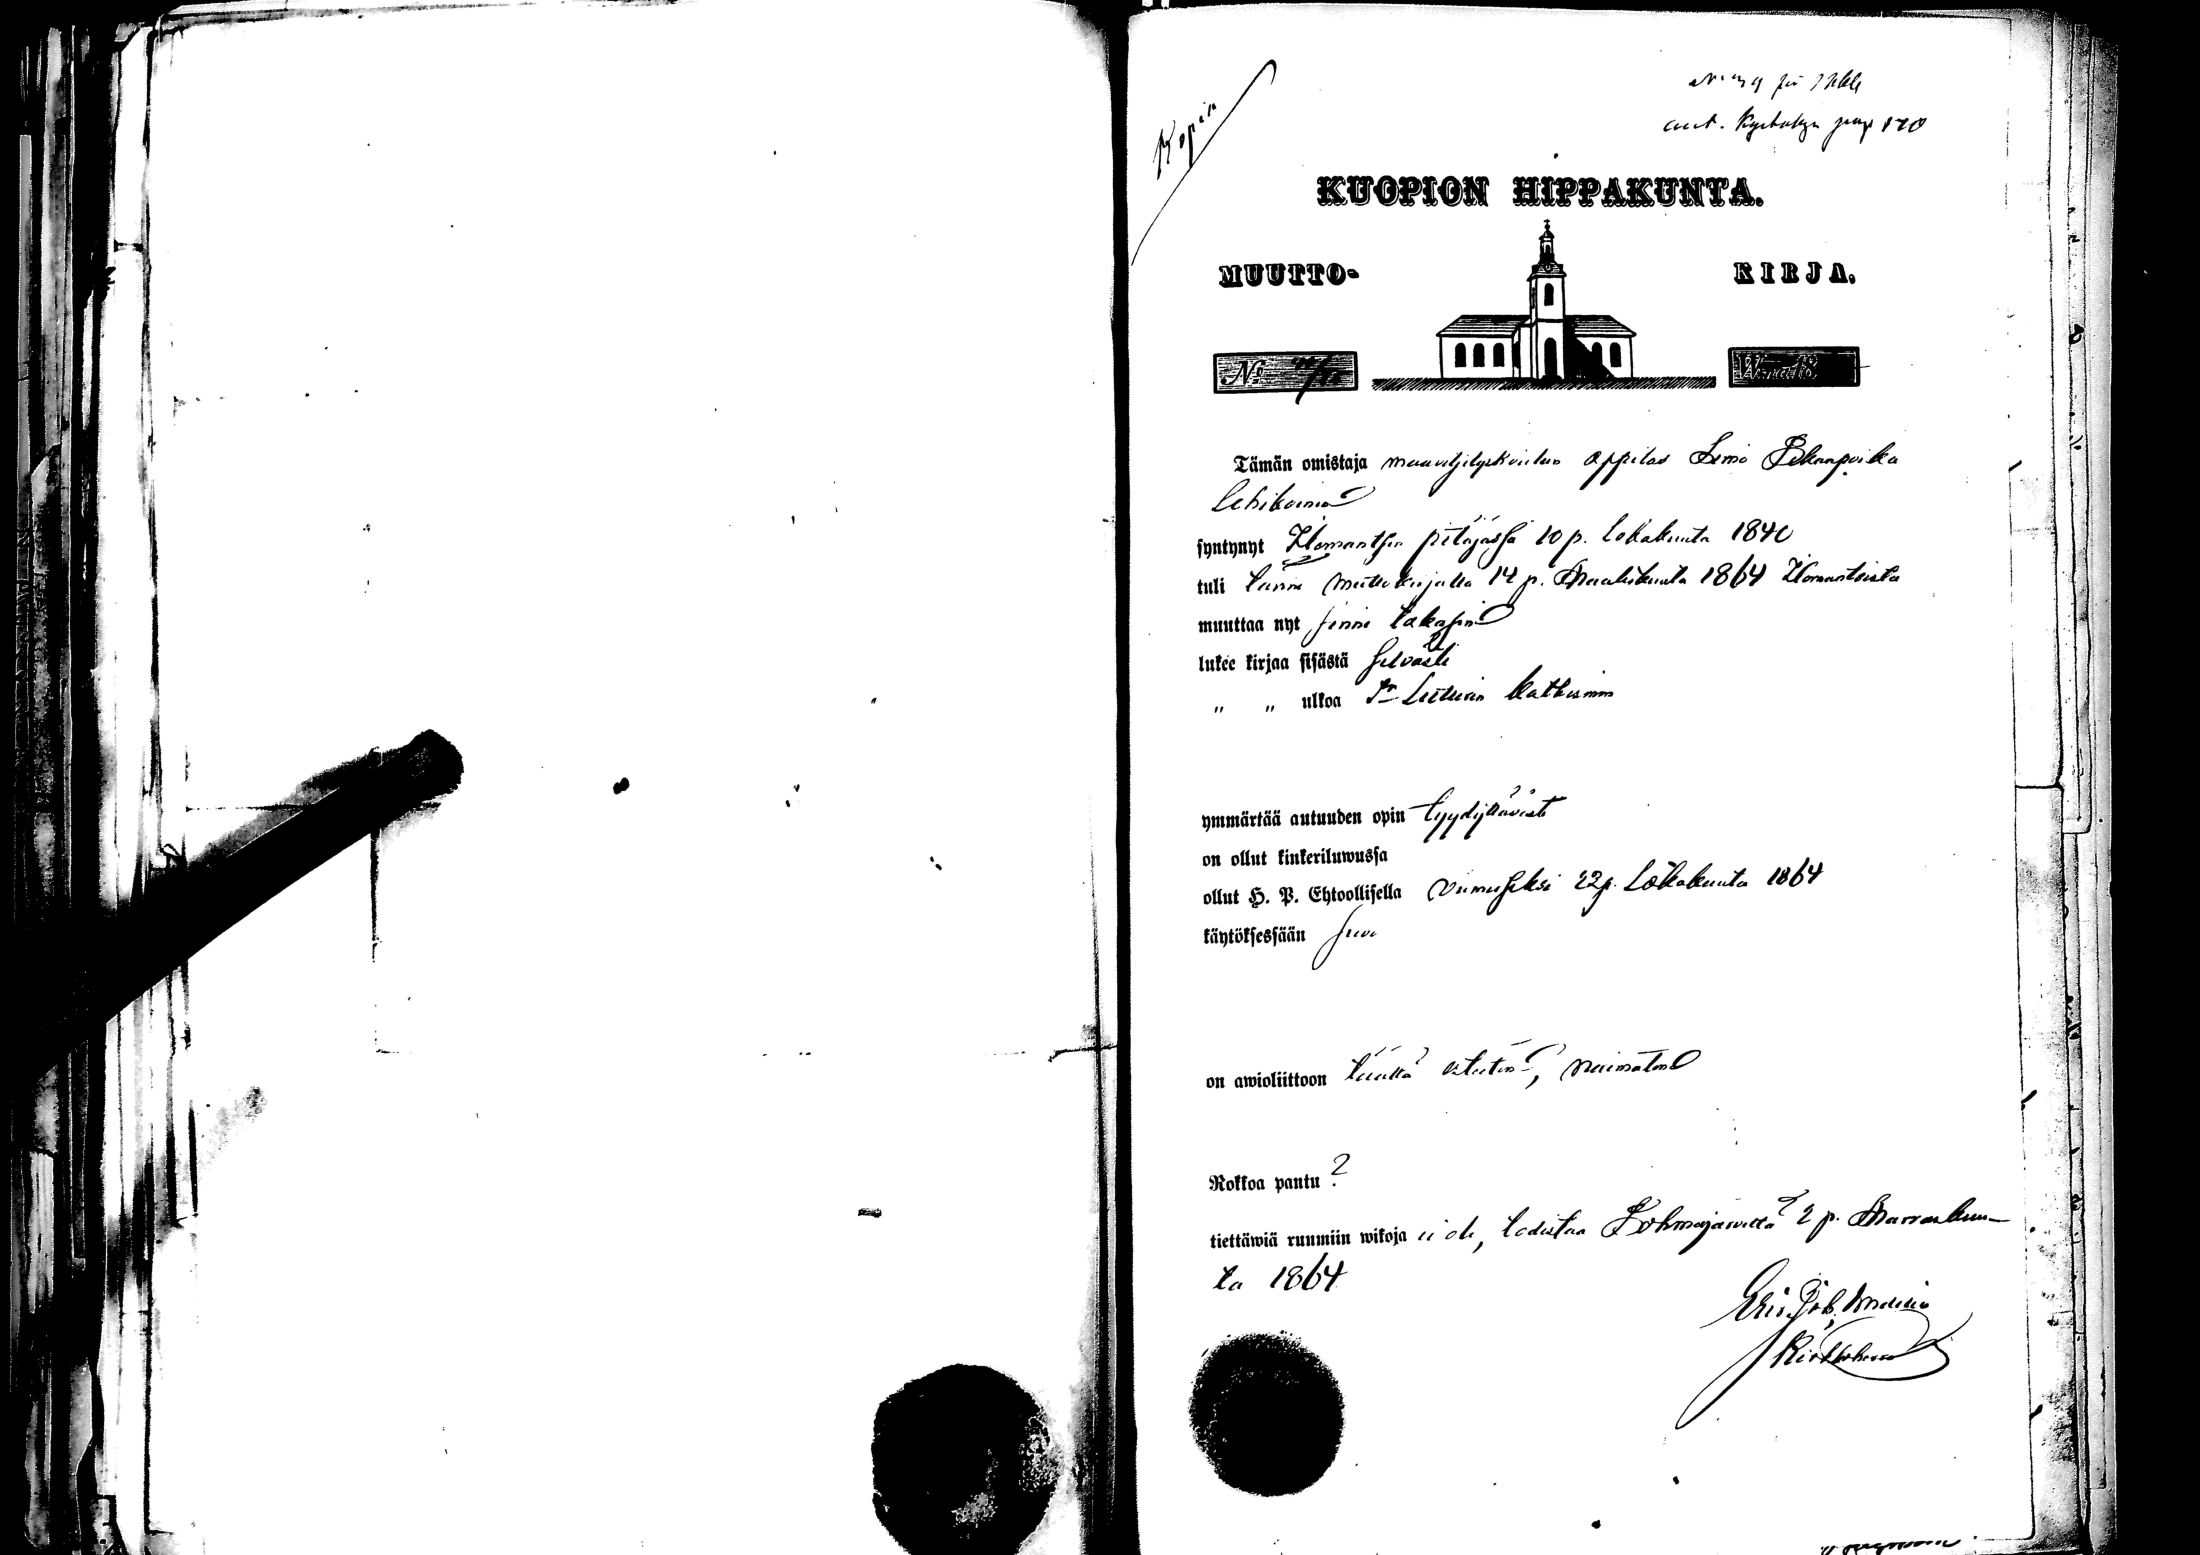 Kopia
KUOPION HIPPAKUNTA.
MUUTTO- KIRJA.
No
Tämän omistaja maanviljelyskoulun oppilas Simo Pekanpoika
Lehikoinen
syntynyt Ilomantsin pitäjässä 10 p. Lokakuuta 1840
tuli tänne muuttokirjalla 14 p. Maaliskuuta 1864 Ilomantsista
muuttaa nyt sinne takasin
lukee kirjaa sisästä selvästi
„ „ ulkoa Lutherin katkismon
ymmärtää autuuden opin tyydyttävästi
on ollut kinkeriluwussa
ollut H. P. Ehtoollisella viimeseksi 22 p. Lokakuuta 1864
käytöksessään siivo
on awioliittoon täältä esteetön, naimaton
Rokkoa pantu ?
tiettäwiä ruumiin wikoja ei ole, todistaa Tohmajärvellä 2 p. Marraskuu-
ta 1864
Kirkkoherra